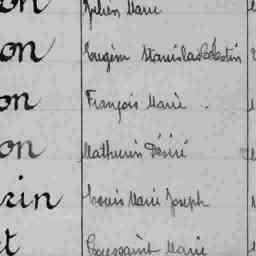 on Julien Marie
on Eugène Stanislas Célestin
on François Marie .
on Mathurin Désiré
rin Louis Marie Joseph
et Toussaint Marie